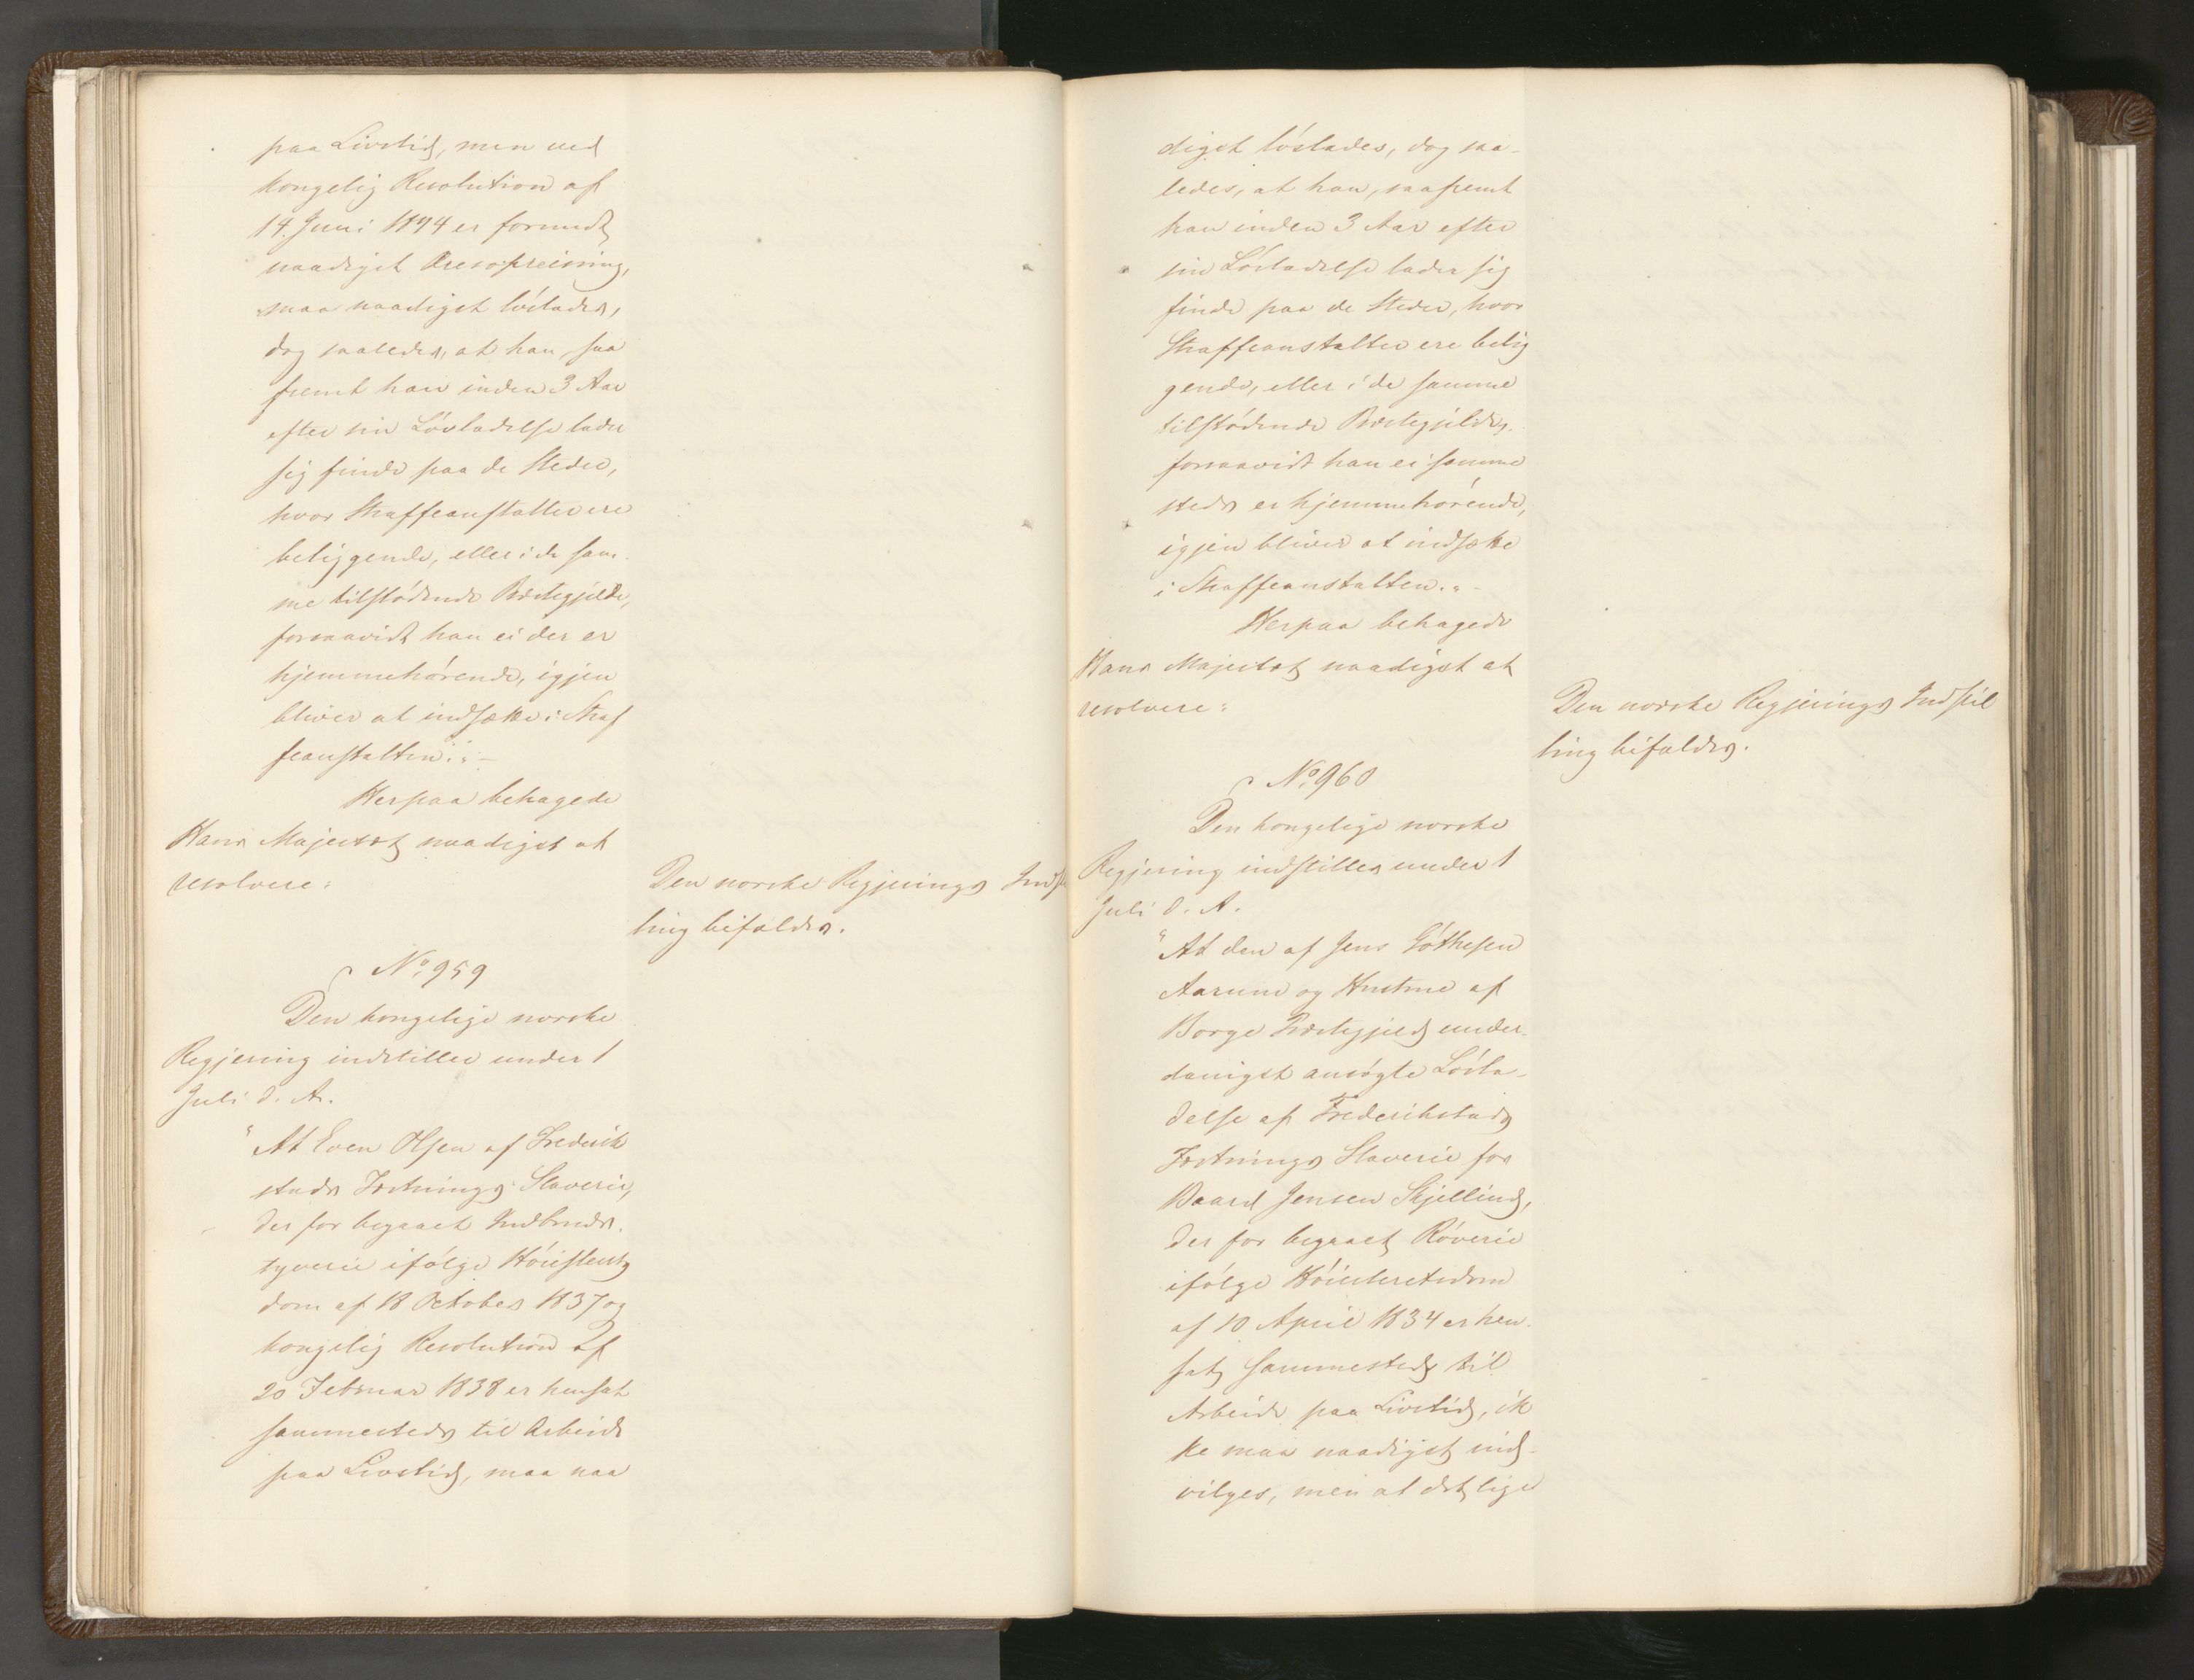 paa Livstid, men ved
kongelig Resolution af
14 Juni 1844 er forundt
naadigst Æresopreisning,
maa naadigst löslades,
dog saaledes, at han saa
fremt han inden 3 Aar
efter sin Lösladelse lader
sig finde paa de Steder,
hvor Straffeanstalter ere
beliggende, eller i de sam
me tilstödende Præstegjelde,
forsaavidt han ei der er
hjemmehörende, igjen
bliver at indsætte i Straf
feanstalten."-
Herpaa behagede
Hans Majestæt naadigst at
resolvere:
Den norske Regjerings Indst
ling bifaldes.
No 959
Den kongelige norske
Regjering indstiller under 1
Juli d. A.
"At Even Olsen af Frederik
stads Fæstnings Slaverie,
der for begaaet Indbruds-
tyverie ifölge Höiesterets
dom af 18 October 1837 og
kongelig Resolution af
20 Februar 1838 er hensat
sammesteds til Arbeide
paa Livstid, maa naa
digst löslades, dog saa-
ledes, at han, saafremt
han inden 3 Aar efter
sin Lösladelse lader sig
finde paa de Steder, hvor
Straffeanstalter ere belig
gende, eller i de samme
tilstödende Præstegjelde,
forsaavidt han ei samme
steds er hjemmehörende,
igjen bliver at indsætte
i Straffeanstalten."-
Herpaa behagede
Hans Majestæt naadigst at
resolvere:
Den norske Regjerings Indstil
ling bifaldes.
No 960
Den kongelige norske
Regjering indstiller under 1
Juli d. A.
"At den af Jens
Aarum og Hustrue af
Borge Præstegjeld under-
danigst ansögte Lösla-
delse af Frederikstads
Fæstnings Slaverie for
Baard Jensen Skjellin,
der for begaaet Röverie
ifölge Höiesteretsdom
af 10 April 1834 er hen-
sat sammesteds til
Arbeide paa Livstid, ik
ke maa naadigst ind-
vilges, men at det lige